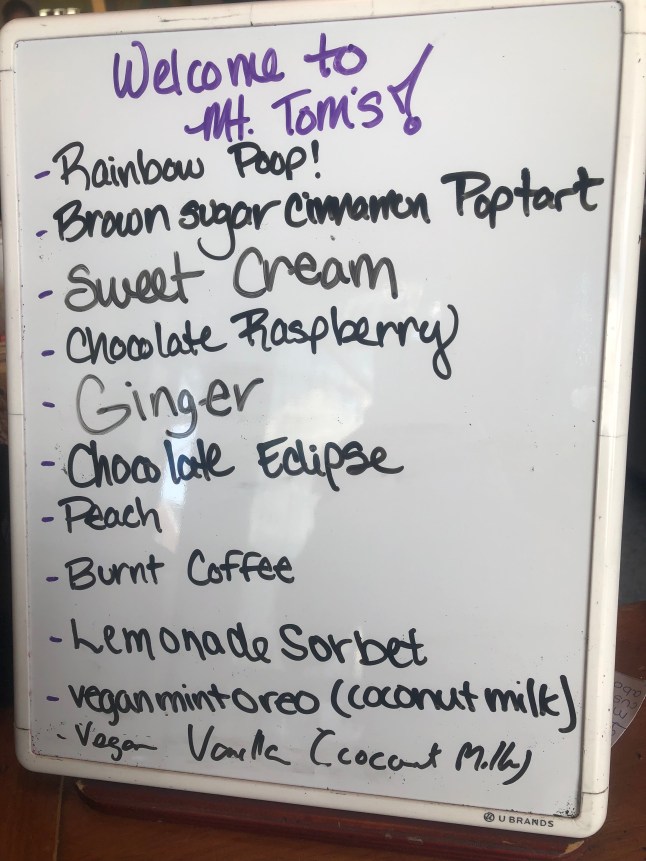 Welcome to
Mt. Tom's!
- Rainbow Poop!
- Brown sugar cinnamon Poptart
- Sweet Cream
- Chocolate Raspberry
- Ginger
- Chocolate Eclipse
- Peach
- Burnt Coffee
- Lemonade Sorbet
- vegan mint oreo (coconut milk)
- Vegan Vanilla (coconut Milk)
U BRANDS